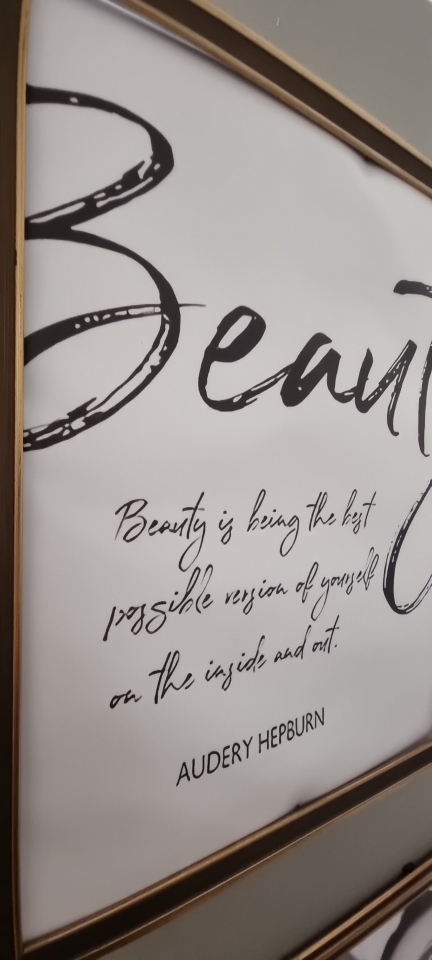 Beauty
Beauty is being the best
possible version of yourself
on the inside and out.
AUDERY HEPBURN